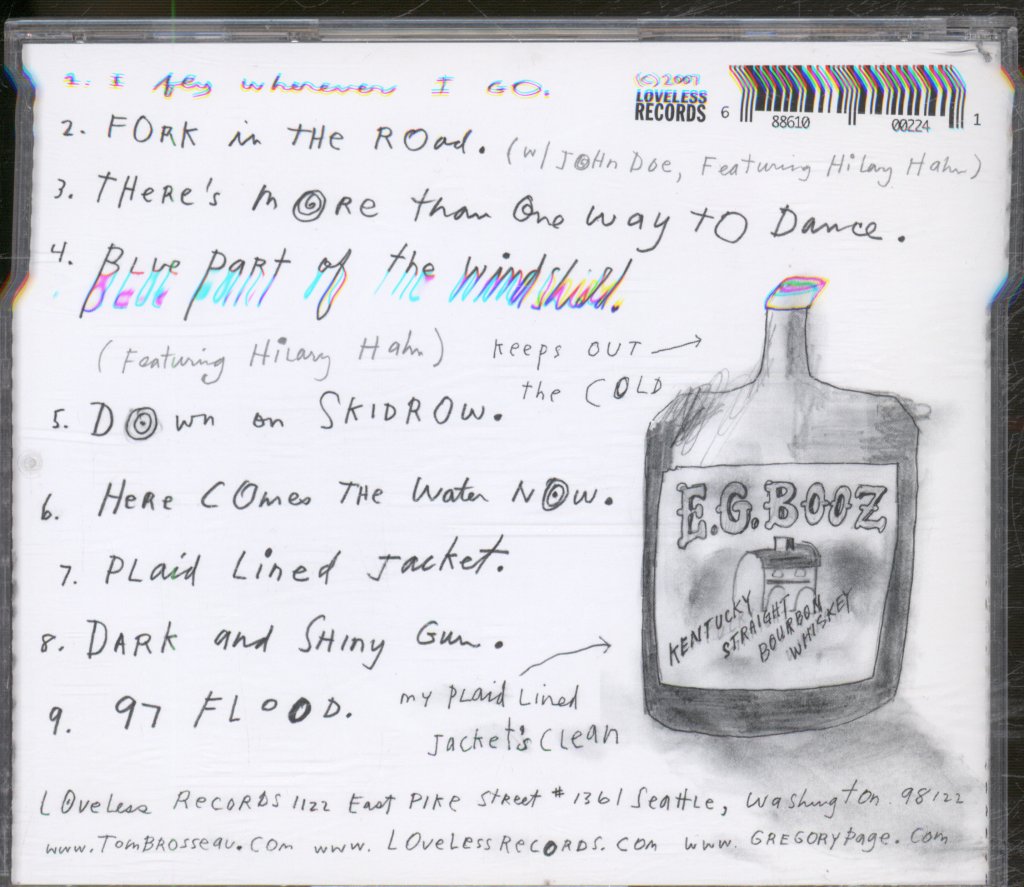 1. I fly wherever I GO.
(c) 2007
LOVELESS
RECORDS
6 88610 00224 1
2. FORK in THE ROad. (w/ JOHn DOE, Featuring Hilary Hahn)
3. THERe's mORe than One way TO Dance.
4. BLue part of the windshield.
(Featuring Hilary Hahn)
keeps OUT
the COLD
5. DOwn on SKIDROW.
6. HeRe COmes THe Water NOw.
7. PLaid Lined Jacket.
8. DARK and SHiny Gun.
9. 97 FLOOD.
my PLaid Lined
Jacket's Clean
E.G. BOOZ
KENTUCKY
STRAIGHT
BOURBON
WHISKEY
LOveLess RecORDS 1122 East PIKe STreet # 1361 Seattle, Washington 98122
www.TomBROsseau.com www.LOveLessRecORDS.com www.GREGORYpage.com